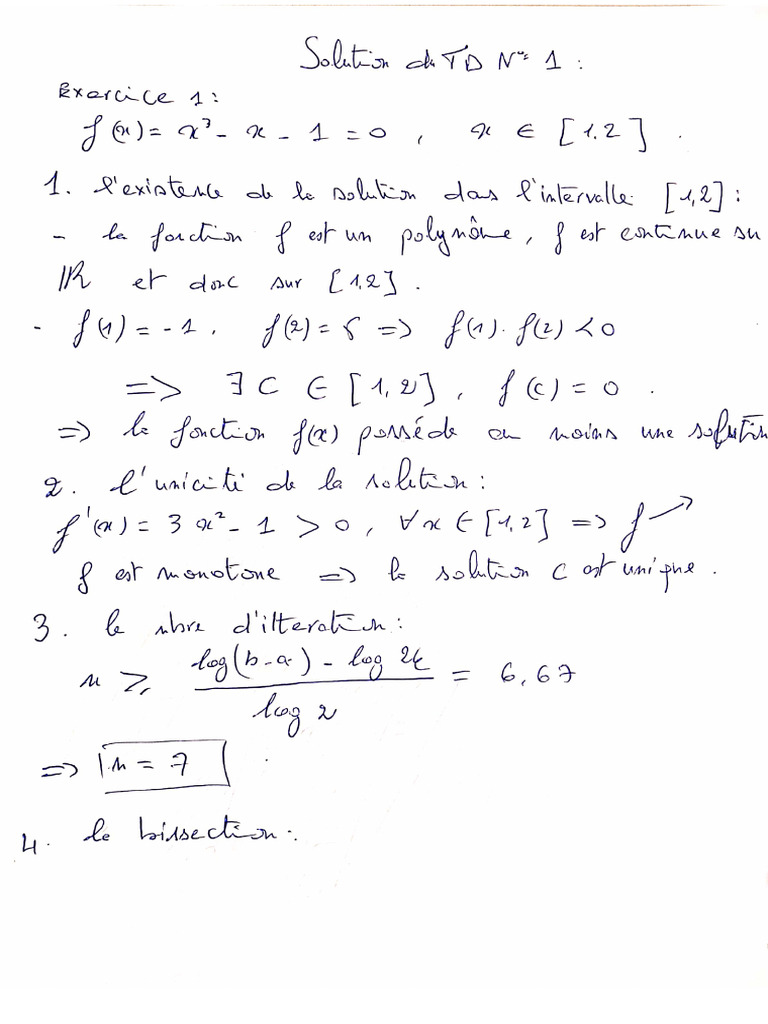 Solution du TD N° 1 :
Exercice 1 :
f(x) = x³ - x - 1 = 0 , x ∈ [1.2] .
1. l'existence de la solution dans l'intervalle [1,2] :
- la fonction f est un polynôme, f est continue su
IR et donc sur [1,2] .
- f(1) = -1 , f(2) = 5 => f(1). f(2) < 0
=> ∃ C ∈ [1,2] , f(c) = 0 .
=> la fonction f(x) possède au moins une solution
2. l'unicité de la solution :
f'(x) = 3x² - 1 > 0 , ∀x ∈ [1,2] => f ↗
f est monotone => la solution C est unique .
3. le nbre d'itteration :
n ≥ (log(b-a) - log 2ε) / log 2 = 6,67
=> n = 7
4. la bissection :